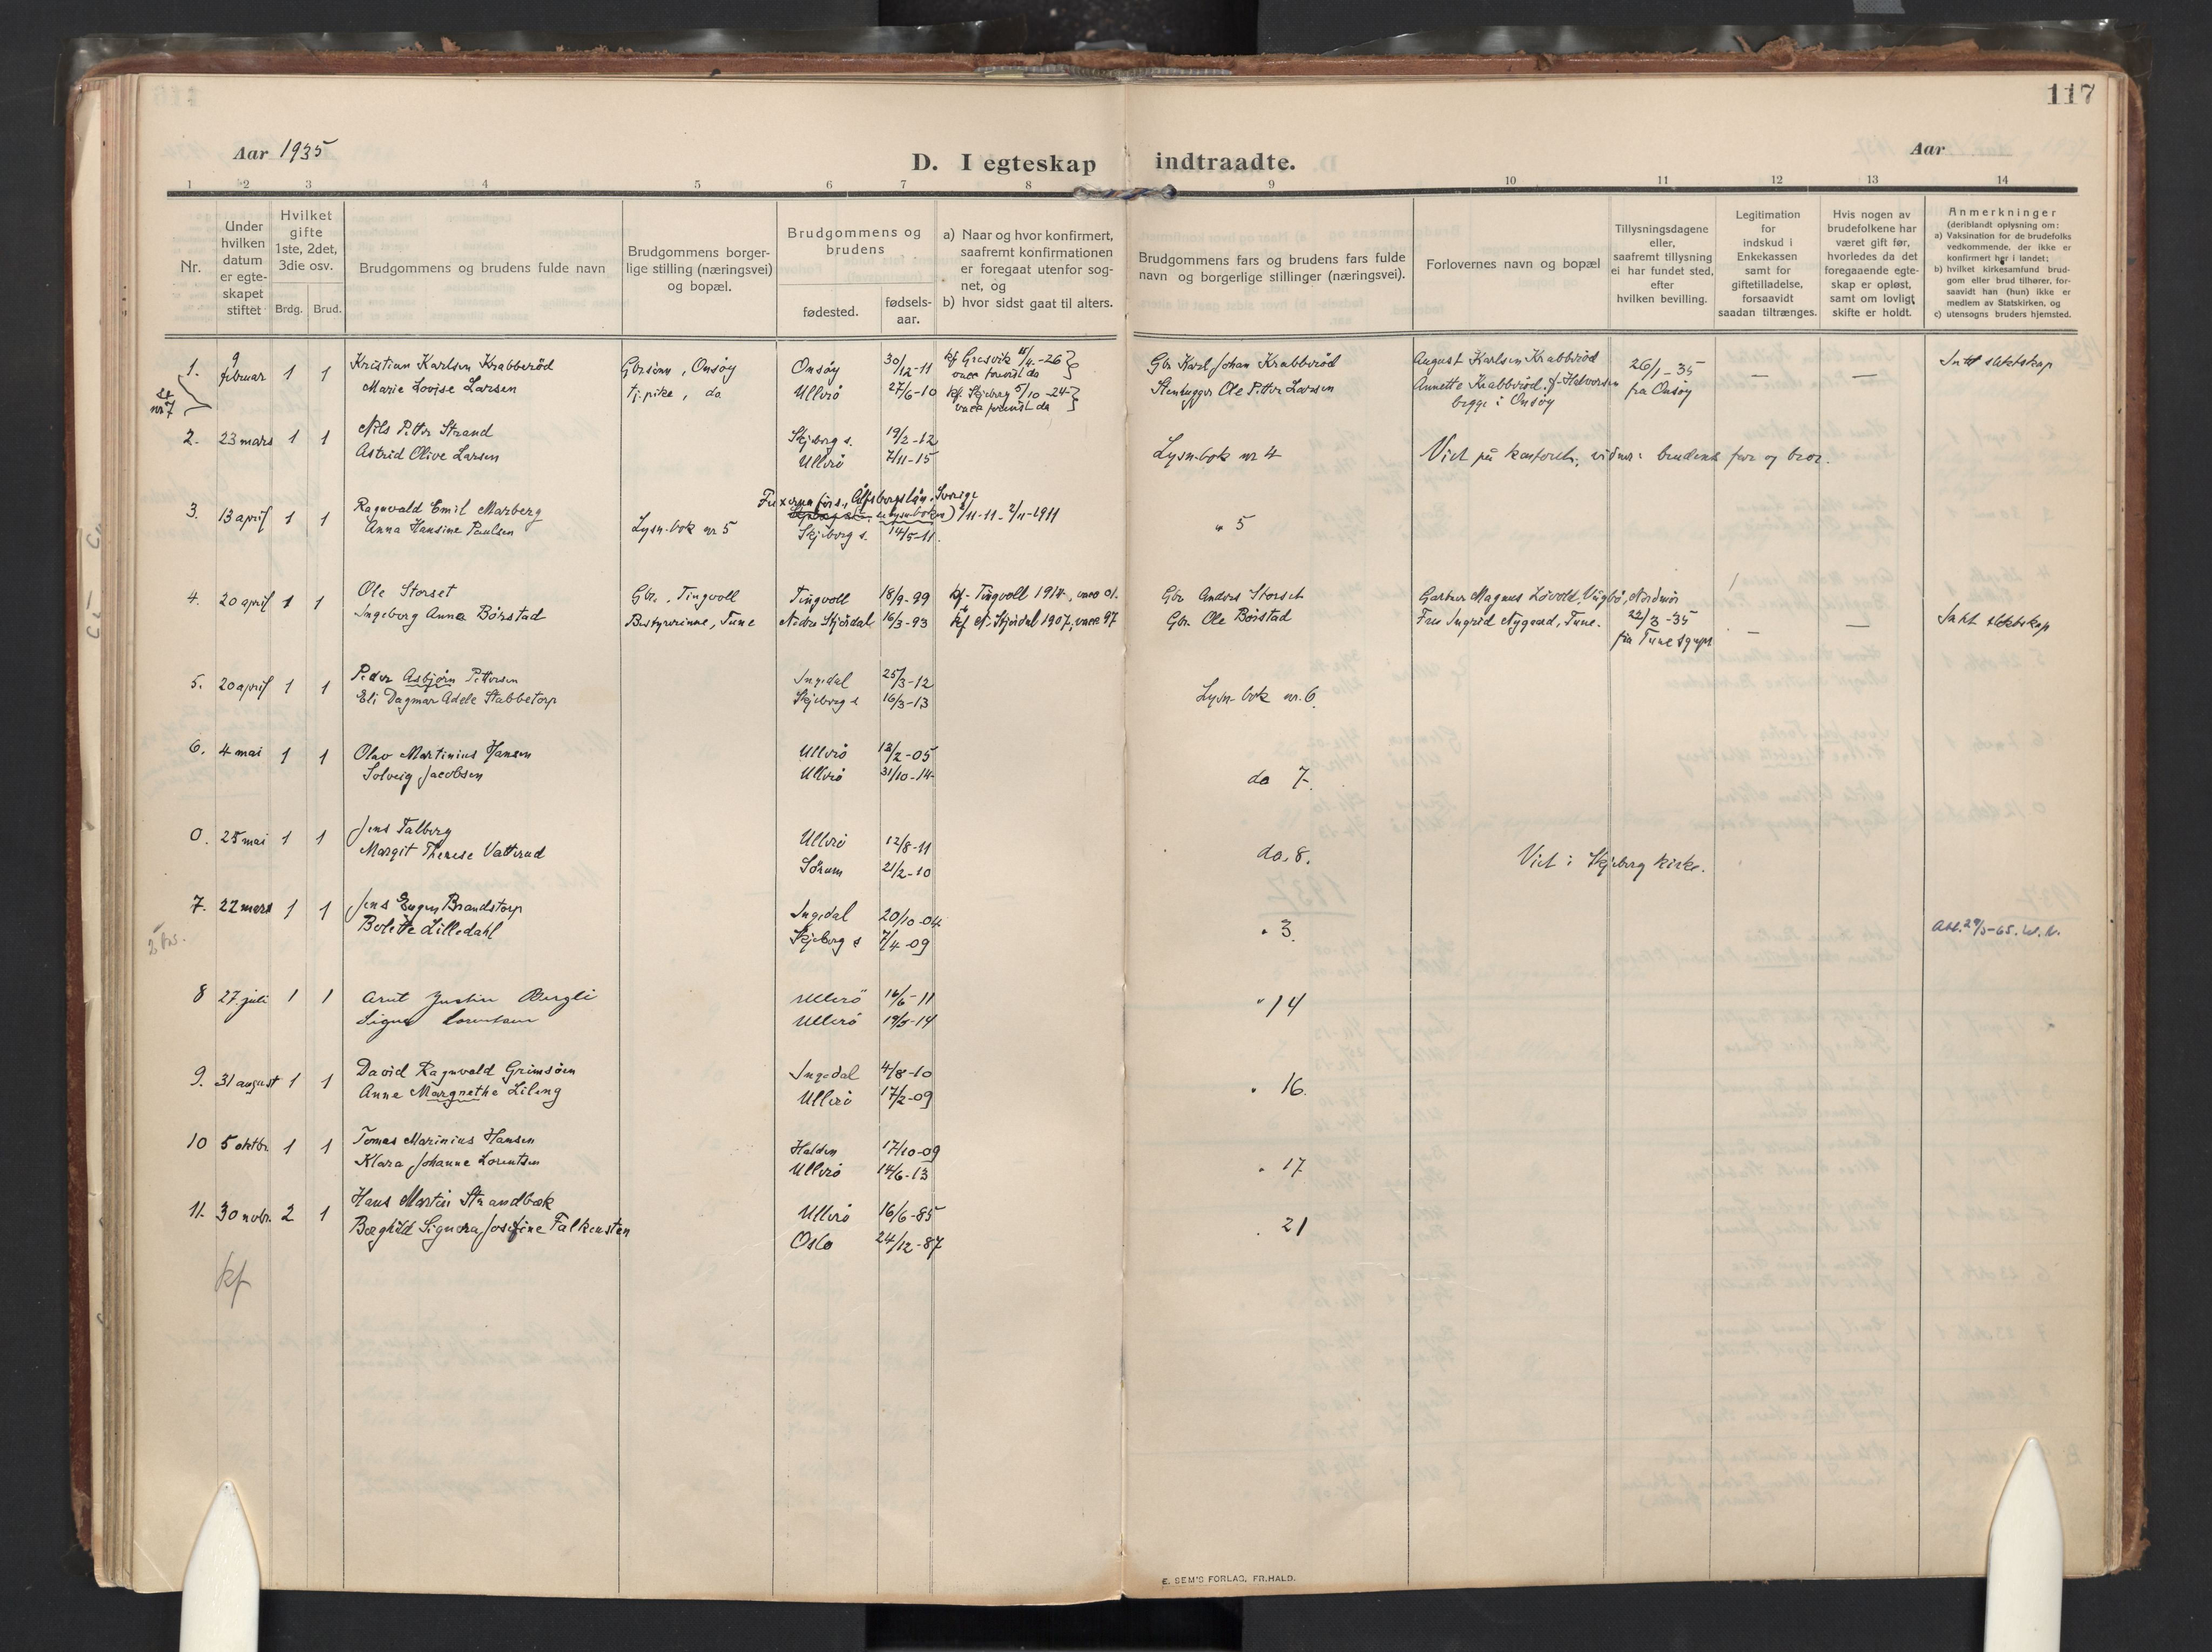 117
Aar 1935
D. I egteskap indtraadte.
Aar
1 2 3 4 5 6 7 8 9 10 11 12 13 14
Nr.
Under hvilken datum er egte- skapet stiftet
Hvilket gifte 1ste, 2det, 3die osv.
Brdg. Brud.
Brudgommens og brudens fulde navn
Brudgommens borger- lige stilling (næringsvei) og bopæl.
Brudgommens og brudens
fødested.
fødsels- aar.
a) Naar og hvor konfirmert, saafremt konfirmationen er foregaat utenfor sog- net, og
b) hvor sidst gaat til alters.
Brudgommens fars og brudens fars fulde navn og borgerlige stillinger (næringsvei).
Forlovernes navn og bopæl
Tillysningsdagene eller, saafremt tillysning ei har fundet sted, efter hvilken bevilling.
Legitimation for indskud i Enkekassen samt for giftetilladelse, forsaavidt saadan tiltrænges.
Hvis nogen av brudefolkene har været gift før, hvorledes da det foregaaende egte- skap er opløst, samt om lovligt skifte er holdt.
Anmerkninger (deriblandt oplysning om:
a) Vaksination for de brudefolks vedkommende, der ikke er konfirmert her i landet;
b) hvilket kirkesamfund brud- gom eller brud tilhører, for- saavidt han (hun) ikke er medlem av Statskirken, og
c) utensogns bruders hjemsted.
1. 9 februar 1 1 Kristian Karlsen Krabberöd Gbrsönn, Onsöy Onsöy 30/12-11 kf Gresvik 15/4-26 Gbr Karl Johan Krabberöd August Karlsen Krabberöd 26/1-35 — — Intet slektskap
Marie Lovise Larsen tj. pike, do Ullerö 27/6-10 kf. Skjeberg 5/10-24 Stenhugger Ole Petter Larsen Annette Krabberöd f. Halvorsen fra Onsöy
begge i Onsöy
nr 7
2. 23 mars 1 1 Nils Petter Strand Skjeberg s. 19/2-12
Astrid Olive Larsen Ullerö 7/11-15 Lysn-bok nr 4 Viet på kontoret, vidner: brudens far og bror.
3. 13 april 1 1 Ragnvald Emil Marberg Älfsborgslän, Sverige 2/11-11 - 2/11-1911
Anna Hansine Paulsen Lysn-bok nr 5 Skjeberg s. 14/5-11. " 5
4. 20 april 1 1 Ole Storset Gbr., Tingvoll Tingvoll 18/9-99 kf. Tingvoll 1914, vacc 01. Gbr Anders Storset Gartner Magnus Lövold, Nordmör
Ingeborg Anna Börstad Bestyrerinne, Tune Nedre Stjördal 16/3-93 kf N. Stjördal 1907, vacc 97 Gbr. Ole Börstad Fru Ingrid Nygaard, Tune. 22/3-35 — — Intet slektskap
fra Tune sgnpr
5. 20 april 1 1 Peder Asbjörn Pettersen Ingedal 25/3-12
Eli Dagmar Adele Stabbetorp Skjeberg s 16/3-13 Lysn-bok nr. 6.
6. 4 mai 1 1 Olav Martinius Hansen Ullerö 12/2-05
Solveig Jacobsen Ullerö 31/10-14 do 7.
0. 25 mai 1 1 Jens Talberg Ullerö 12/8-11
Margit Therese Vatterud Sörum 21/2-10 do. 8. Viet i Skjeberg kirke.
7. 22 mars 1 1 Jens Eugen Brandstorp Ingedal 20/10-04
Berete Lilledahl Skjeberg s 7/4-09 " 3.
8 27. juli 1 1 Arnt Justin Bergli Ullerö 16/6-11
Signe Lorentsen Ullerö 19/5-14 " 14
9. 31 august 1 1 David Ragnvald Grimsöen Ingedal 4/8-10
Anne Margrethe Lileng Ullerö 17/2-09 " 16.
10 5 oktbr. 1 1 Tomas Marinius Hansen Halden 17/10-09
Klara Johanne Lorentsen Ullerö 14/6-13 " 17
11. 30 novbr. 2 1 Hans Martin Strandbæk Ullerö 16/6-85
Borghild Signora Josefine Falkensten Oslo 24/12-87 21
kf
E. SEM'S FORLAG, FR.HALD.